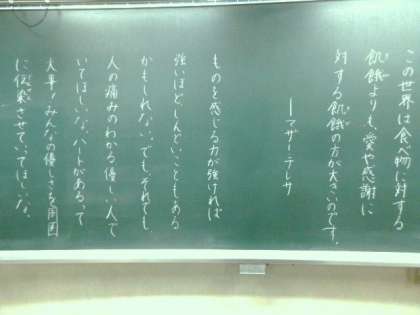 この世界は食べ物に対する
飢餓よりも、愛や感謝に
対する飢餓の方が大きいのです。
ーマザーテレサ
ものを感じる力が強ければ
強いほどしんどいこともある
かもしれない。でも、それでも
人の痛みのわかる優しい人で
いてほしいな。ハートがあるって
大事。みんなの優しさを周囲
に伝染させていてほしいな。